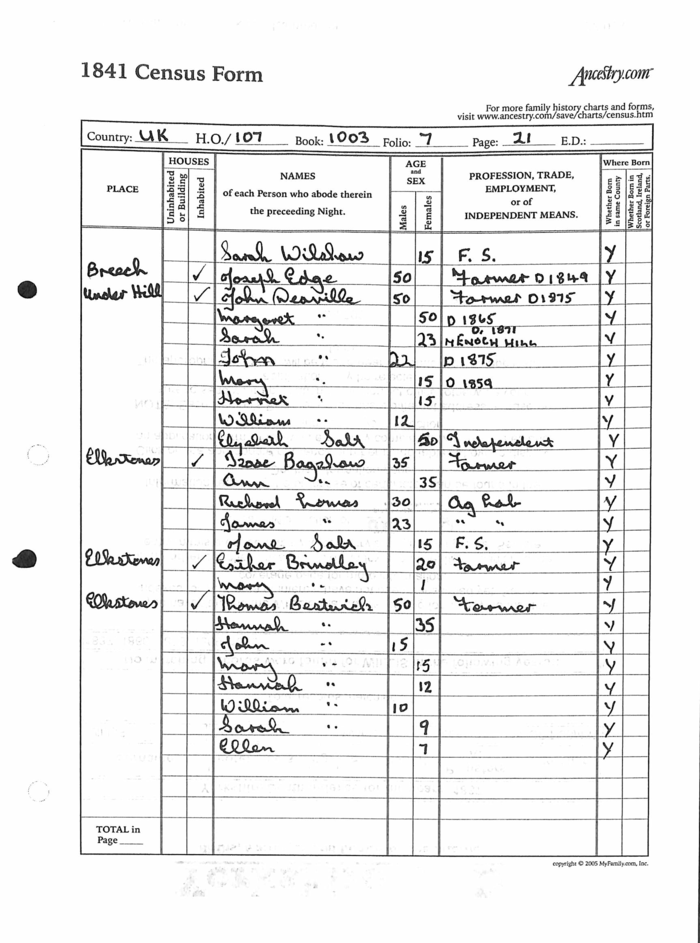 1841 Census Form
Ancestry.com
For more family history charts and forms,
visit www.ancestry.com/save/charts/census.htm
Country: UK H.O./ 107 Book: 1003 Folio: 7 Page: 21 E.D.:
PLACE
HOUSES
Uninhabited or Building
Inhabited
NAMES
of each Person who abode therein
the preceeding Night.
AGE and SEX
Males
Females
PROFESSION, TRADE,
EMPLOYMENT,
or of
INDEPENDENT MEANS.
Where Born
Whether Born in same County
Whether Born in Scotland, Ireland, or Foreign Parts.
Sarah Wilshaw 15 F. S. Y
Breech ✓ Joseph Edge 50 Farmer D 1849 Y
Under Hill ✓ John Deaville 50 Farmer D1875 Y
Margaret " 50 D 1865 Y
Sarah " 23 D. 1871 MENOCH HILL Y
John " 22 D 1875 Y
Mary " 15 D 1859 Y
Harriet " 15 Y
William " 12 Y
Elyzabeth Salt 50 Independent Y
Elkstones ✓ Isaac Bagshaw 35 Farmer Y
Ann " 35 Y
Richard Lomas 30 Ag Lab Y
James " 23 " " Y
Jane Salt 15 F. S. Y
Elkstones ✓ Esther Brindley 20 Farmer Y
Mary " 1 Y
Elkstones ✓ Thomas Bestwick 50 Farmer Y
Hannah " 35 Y
John " 15 Y
Mary " 15 Y
Hannah " 12 Y
William " 10 Y
Sarah " 9 Y
Ellen 7 Y
TOTAL in
Page
copyright © 2005 MyFamily.com, Inc.